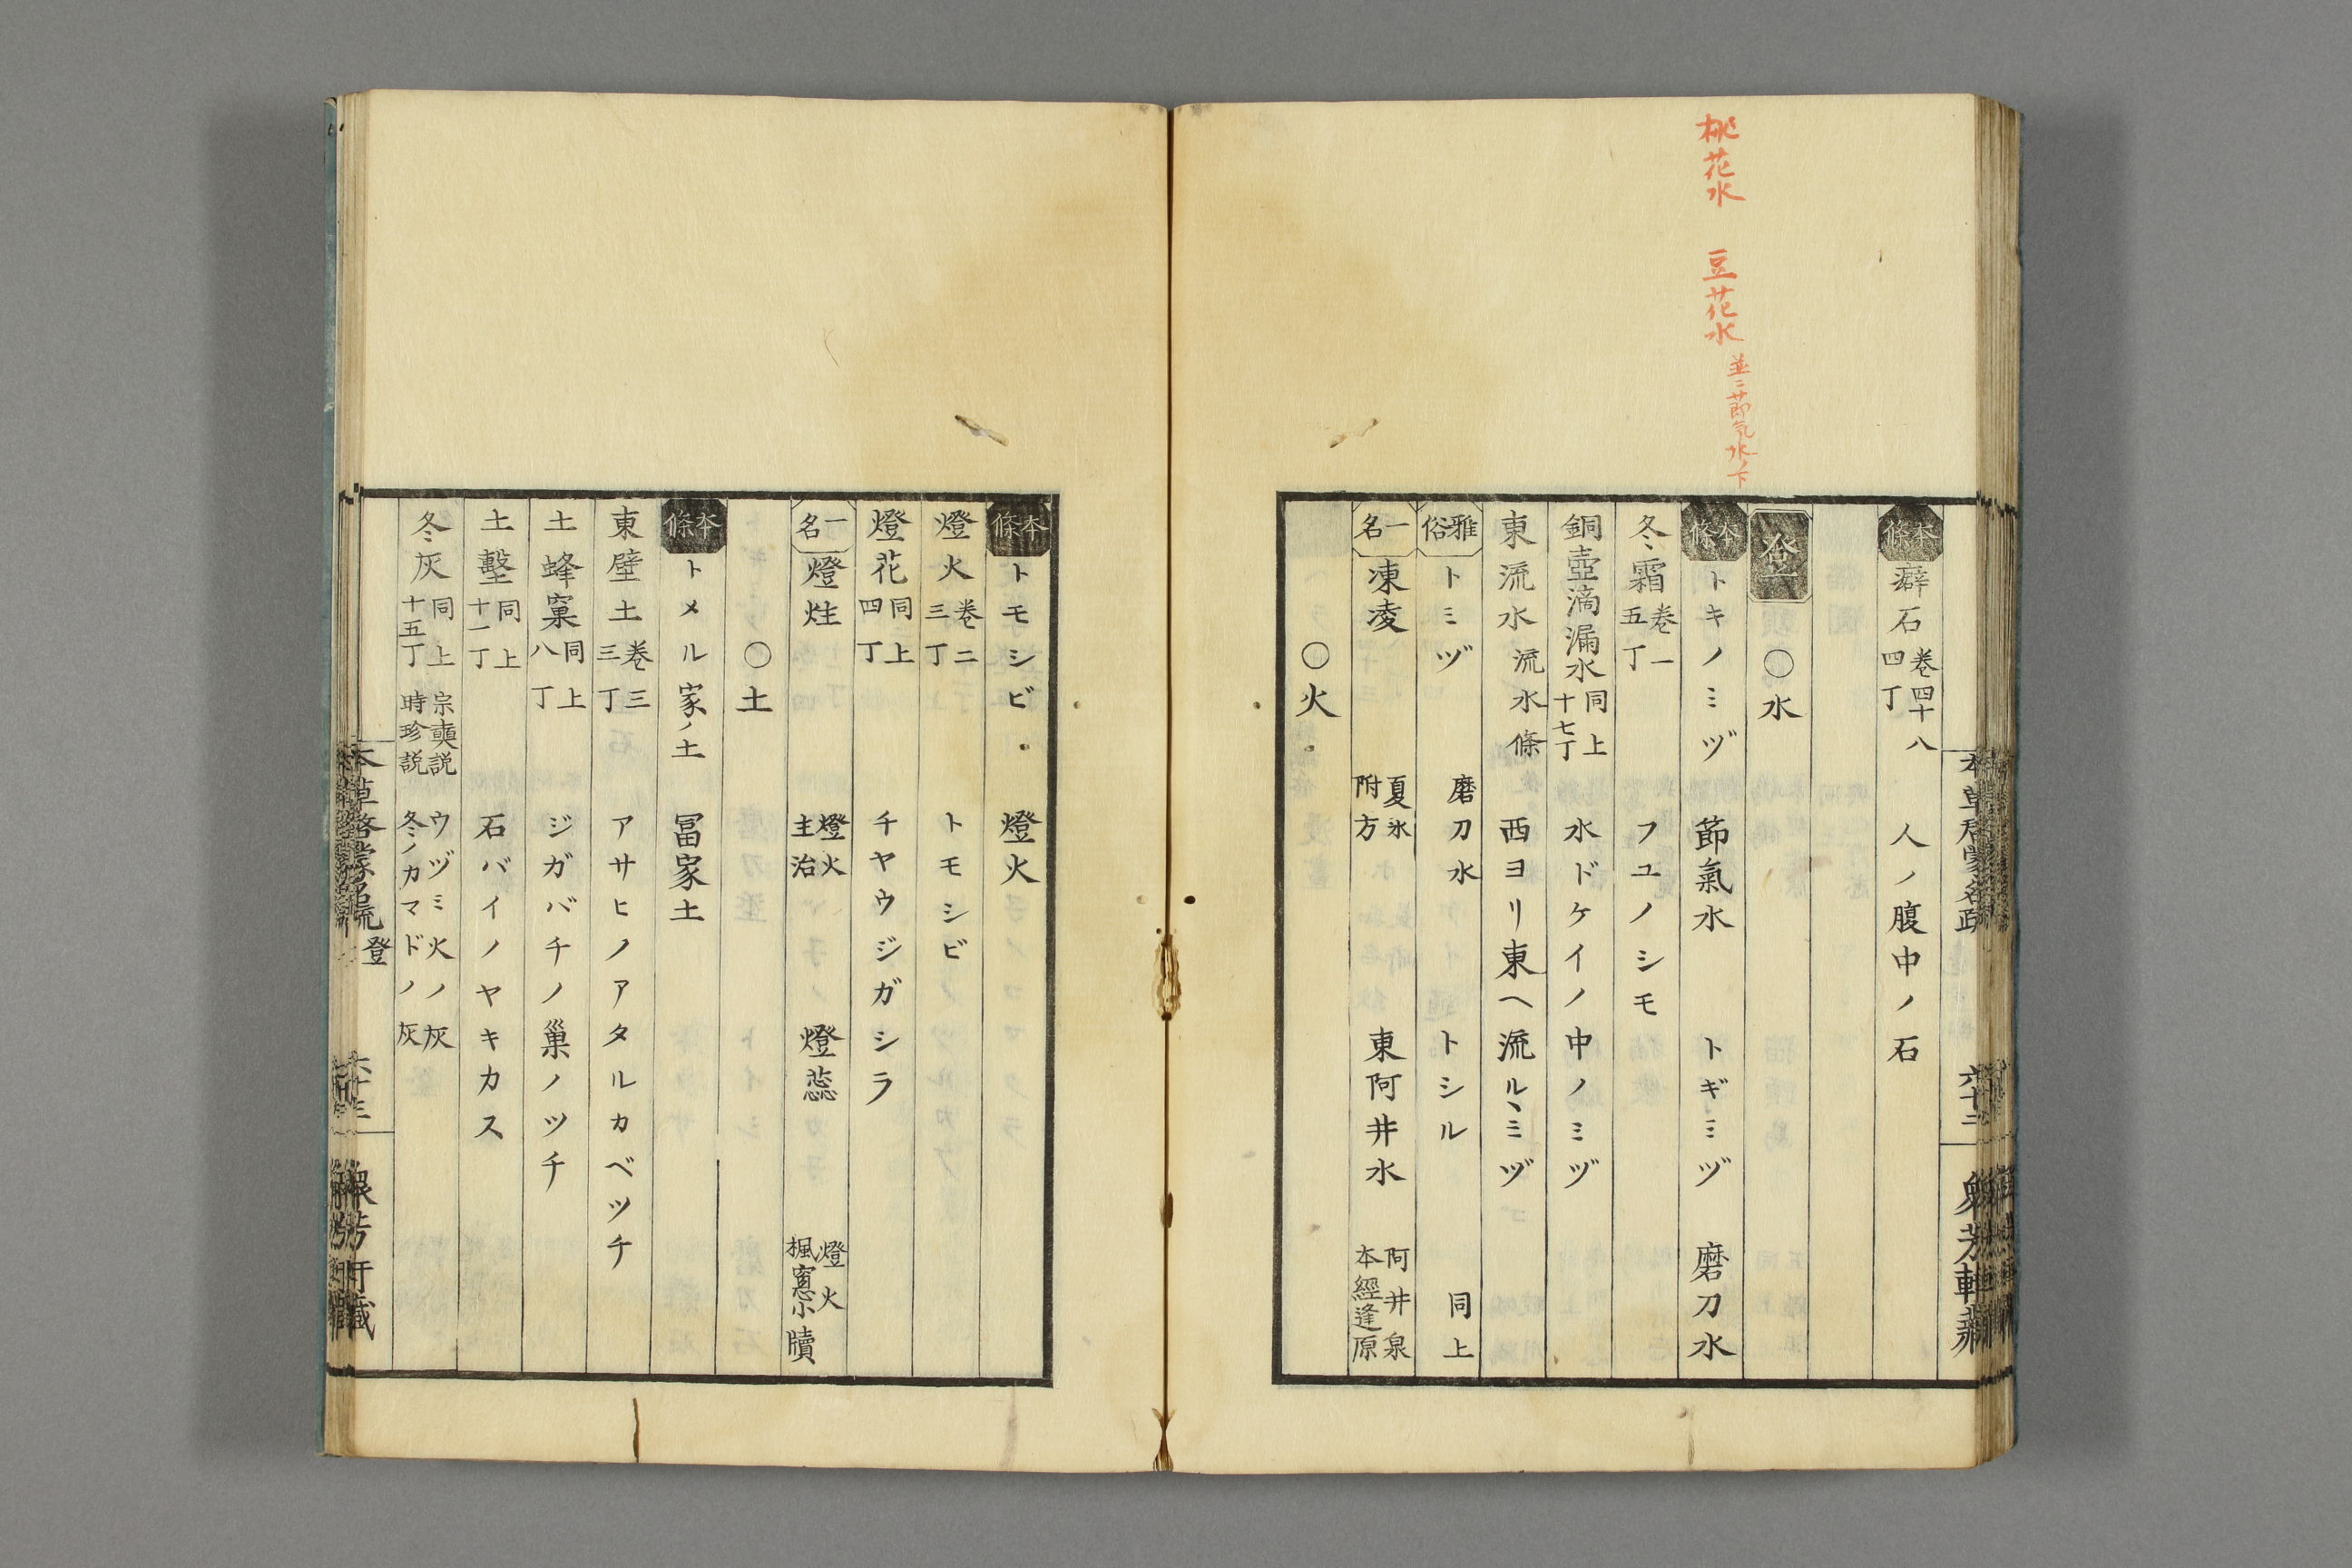 桃花水 豆花水 並ニ節気水ノ下
本條 癖石 卷四十八 四丁 人ノ腹中ノ石
登
○水
本條 トキノミヅ 節氣水 トギミヅ 磨刀水
冬霜 卷一 五丁 フユノシモ
銅壺滴漏水 同上 十七丁 水ドケイノ中ノミヅ
東流水 流水條 西ヨリ東ヘ流ルヽミヅ
雅俗 トミヅ 磨刀水 トシル 同上
一名 凍凌 夏氷附方 東阿井水 阿井泉 本經逢原
○火
本條 トモシビ 燈火
燈火 卷二 三丁 トモシビ
燈花 同上 四丁 チヤウジガシラ
一名 燈炷 燈火主治 燈蕊 燈火 楓窻小牘
○土
本條 トメル家ノ土 冨家土
東壁土 卷三 三丁 アサヒノアタルカベツチ
土蜂窠 同上 八丁 ジガバチノ巢ノツチ
土墼 同上 十一丁 石バイノヤキカス
冬灰 同上 十五丁 宗奭説 ウヅミ火ノ灰 時珍説 冬ノカマドノ灰
本草啓蒙名疏 登 六十三